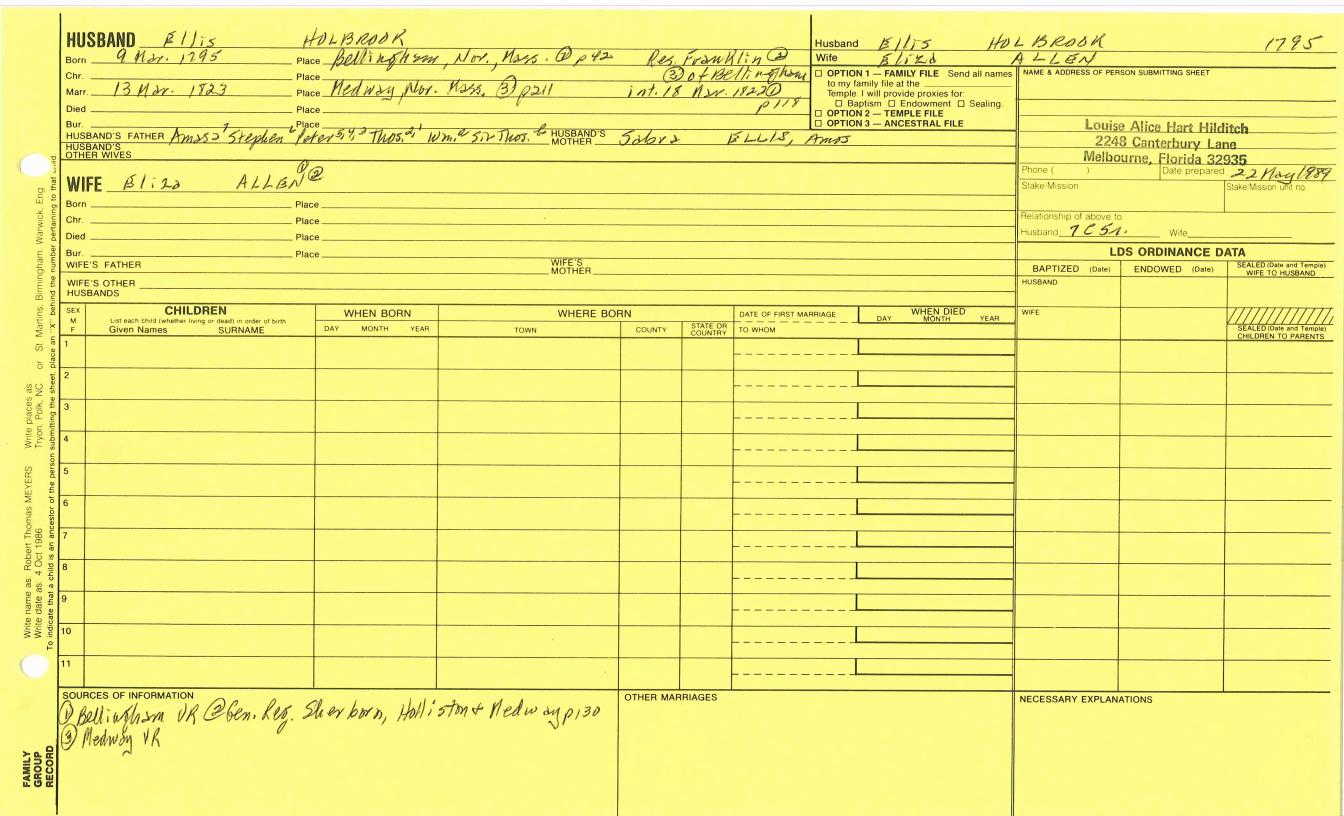 HUSBAND Ellis HOLBROOK
Born 9 Mar. 1795 Place Bellingham, Nor., Mass. ① p42 Res. Franklin ②
Chr. Place ③ of Bellingham
Marr. 13 Mar. 1823 Place Medway, Nor. Mass. ③ p211 int. 18 Mar. 1822 ①
Died Place p118
Bur. Place
HUSBAND'S FATHER Amasa⁷ Stephen⁶ Peter⁵,⁴,³ Thos.²,¹ Wm.ᵃ Sir Thos.ᵇ HUSBAND'S MOTHER Sabra ELLIS, Amos
HUSBAND'S OTHER WIVES
Husband Ellis HOLBROOK 1795
Wife Eliza ALLEN
☐ OPTION 1 — FAMILY FILE Send all names
to my family file at the
Temple. I will provide proxies for:
☐ Baptism ☐ Endowment ☐ Sealing.
☐ OPTION 2 — TEMPLE FILE
☐ OPTION 3 — ANCESTRAL FILE
NAME & ADDRESS OF PERSON SUBMITTING SHEET
Louise Alice Hart Hilditch
2248 Canterbury Lane
Melbourne, Florida 32935
Phone ( ) Date prepared 22 May 1989
Stake/Mission Stake/Mission unit no.
Relationship of above to
Husband 7C5r. Wife
WIFE Eliza ALLEN ① ②
Born Place
Chr. Place
Died Place
Bur. Place
WIFE'S FATHER WIFE'S MOTHER
WIFE'S OTHER HUSBANDS
LDS ORDINANCE DATA
BAPTIZED (Date) ENDOWED (Date) SEALED (Date and Temple) WIFE TO HUSBAND
HUSBAND
WIFE
SEALED (Date and Temple) CHILDREN TO PARENTS
SEX M F
CHILDREN
List each child (whether living or dead) in order of birth
Given Names SURNAME
WHEN BORN
DAY MONTH YEAR
WHERE BORN
TOWN COUNTY STATE OR COUNTRY
DATE OF FIRST MARRIAGE
TO WHOM
WHEN DIED
DAY MONTH YEAR
1
2
3
4
5
6
7
8
9
10
11
SOURCES OF INFORMATION
① Bellingham VR ② Gen. Reg. Sherborn, Holliston & Medway p130
③ Medway VR
OTHER MARRIAGES
NECESSARY EXPLANATIONS
Write name as Robert Thomas MEYERS Write places as Tryon, Polk, NC or St Martins, Birmingham, Warwick, Eng
Write date as 4 Oct 1986
To indicate that a child is an ancestor of the person submitting the sheet, place an "X" behind the number pertaining to that child.
FAMILY
GROUP
RECORD